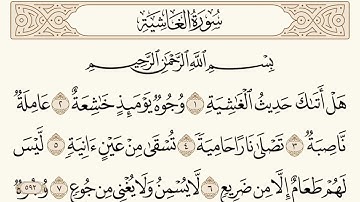 سُورَةُ الغَاشِيَةِ
بِسْمِ اللَّهِ الرَّحْمَٰنِ الرَّحِيمِ
هَلْ أَتَىٰكَ حَدِيثُ الْغَٰشِيَةِ ١ وُجُوهٌ يَوْمَئِذٍ خَٰشِعَةٌ ٢ عَامِلَةٌ
نَّاصِبَةٌ ٣ تَصْلَىٰ نَارًا حَامِيَةً ٤ تُسْقَىٰ مِنْ عَيْنٍ ءَانِيَةٍ ٥ لَّيْسَ
لَهُمْ طَعَامٌ إِلَّا مِن ضَرِيعٍ ٦ لَّا يُسْمِنُ وَلَا يُغْنِي مِن جُوعٍ ٧ وُجُوهٌ
٥٩٢